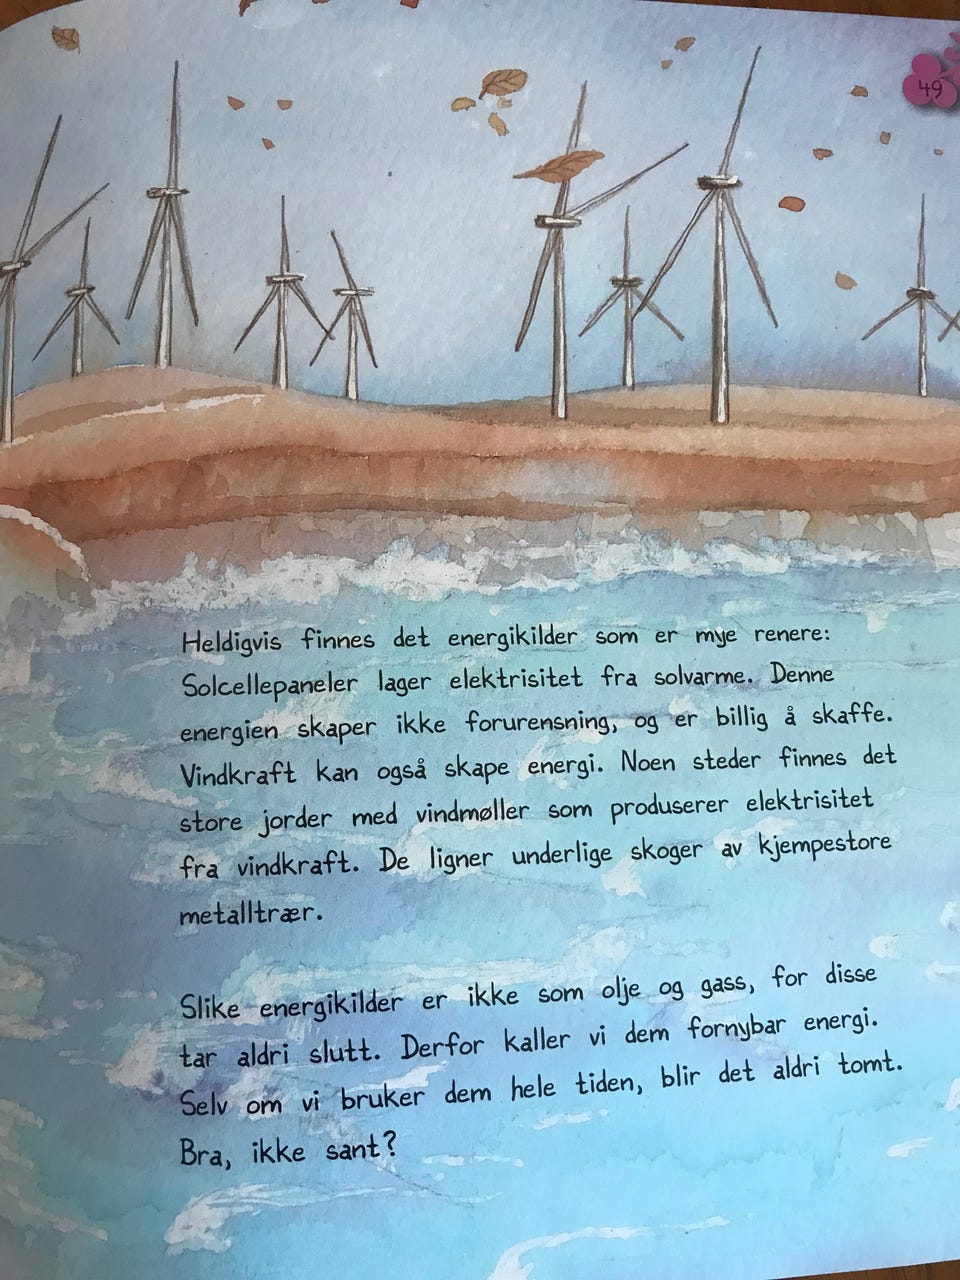 49
Heldigvis finnes det energikilder som er mye renere:
Solcellepaneler lager elektrisitet fra solvarme. Denne
energien skaper ikke forurensning, og er billig å skaffe.
Vindkraft kan også skape energi. Noen steder finnes det
store jorder med vindmøller som produserer elektrisitet
fra vindkraft. De ligner underlige skoger av kjempestore
metalltrær.
Slike energikilder er ikke som olje og gass, for disse
tar aldri slutt. Derfor kaller vi dem fornybar energi.
Selv om vi bruker dem hele tiden, blir det aldri tomt.
Bra, ikke sant?